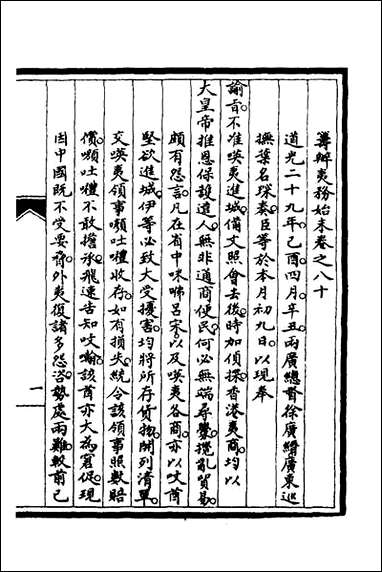 籌辦夷務始末卷之八十
道光二十九年己酉四月辛丑兩廣總督徐廣縉廣東巡
撫葉名琛奏臣等於本月初九日以現奉
諭旨不准嘆夷進城備文照會去後時加偵探香港夷商均以
大皇帝推恩保護遠人無非通商便民何必無端尋釁攪亂貿易
頗有怨言凡在省中咪㖠呂宋以及嘆夷各商亦以𠸄酋
堅欲進城伊等必致大受擾害均將所存貨物開列清單
交嘆夷領事嚬吐噎收存如有損失統令該領事照數賠
償嚬吐噎不敢擔承飛速告知𠸄噙該酋亦大為窘促現
因中國既不受要脅外夷復諸多怨咨勢處兩難較前已
一